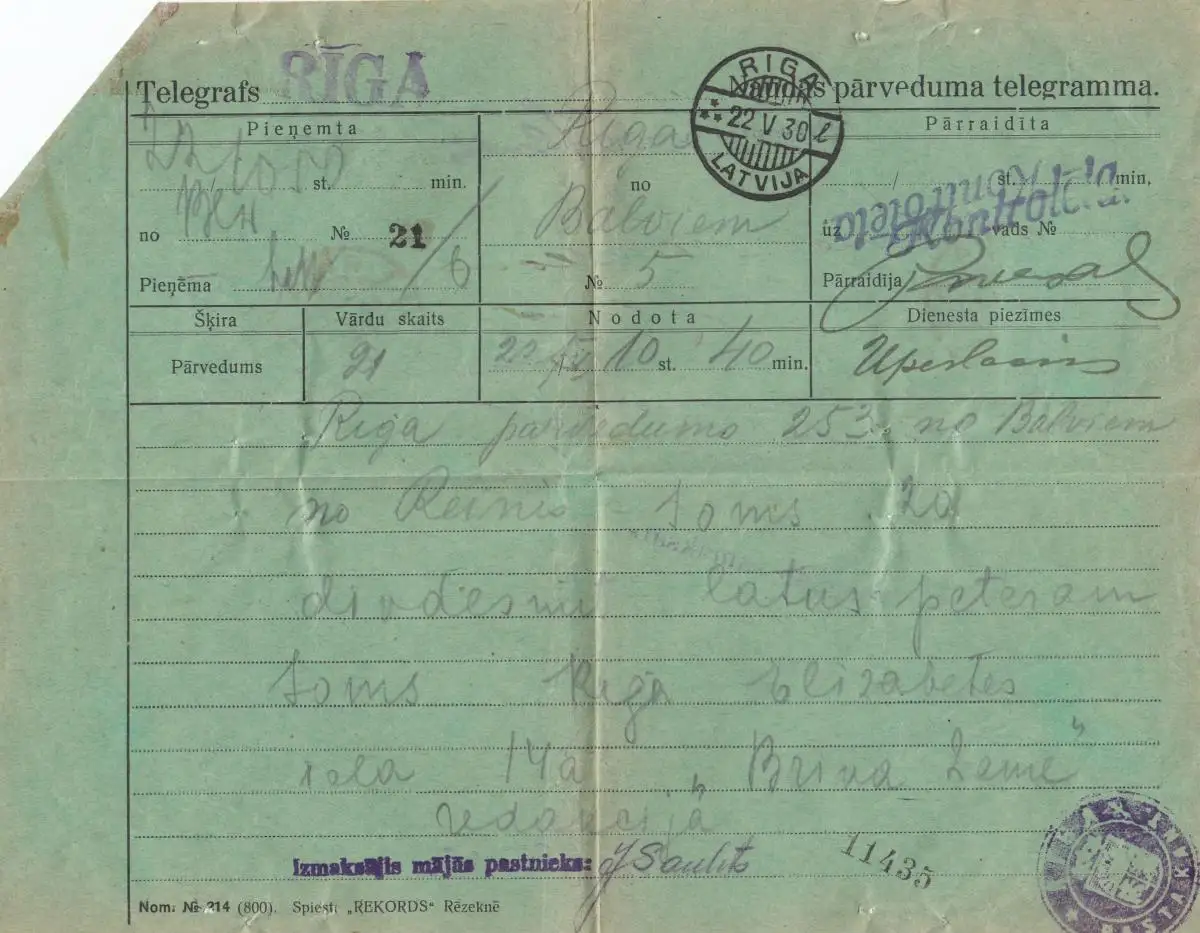 Telegrafs RĪGA Naudas pārveduma telegramma.
RIGA
22 V 30 l
LATVIJA
Pieņemta
Pārraidīta
Rīga
st. min.
no
Balviem
st. min.
no № 21 / 6
uz vads №
Kontrolēta
Pieņēma
№ 5
Pārraidīja
Šķira
Vārdu skaits
Nodota
Dienesta piezīmes
Pārvedums
21
22 / V 10 st. 40 min.
Riga parvedumo 253 no Balviem
no Reinis Soms 20
divdesmit latus peteram
Soms Riga Elizabetes
iela 14a „Briva Zeme"
redakcijā
Izmaksājis mājās pastnieks: J Saulīts
11435
Nom. № 214 (800). Spiests „REKORDS“ Rēzeknē